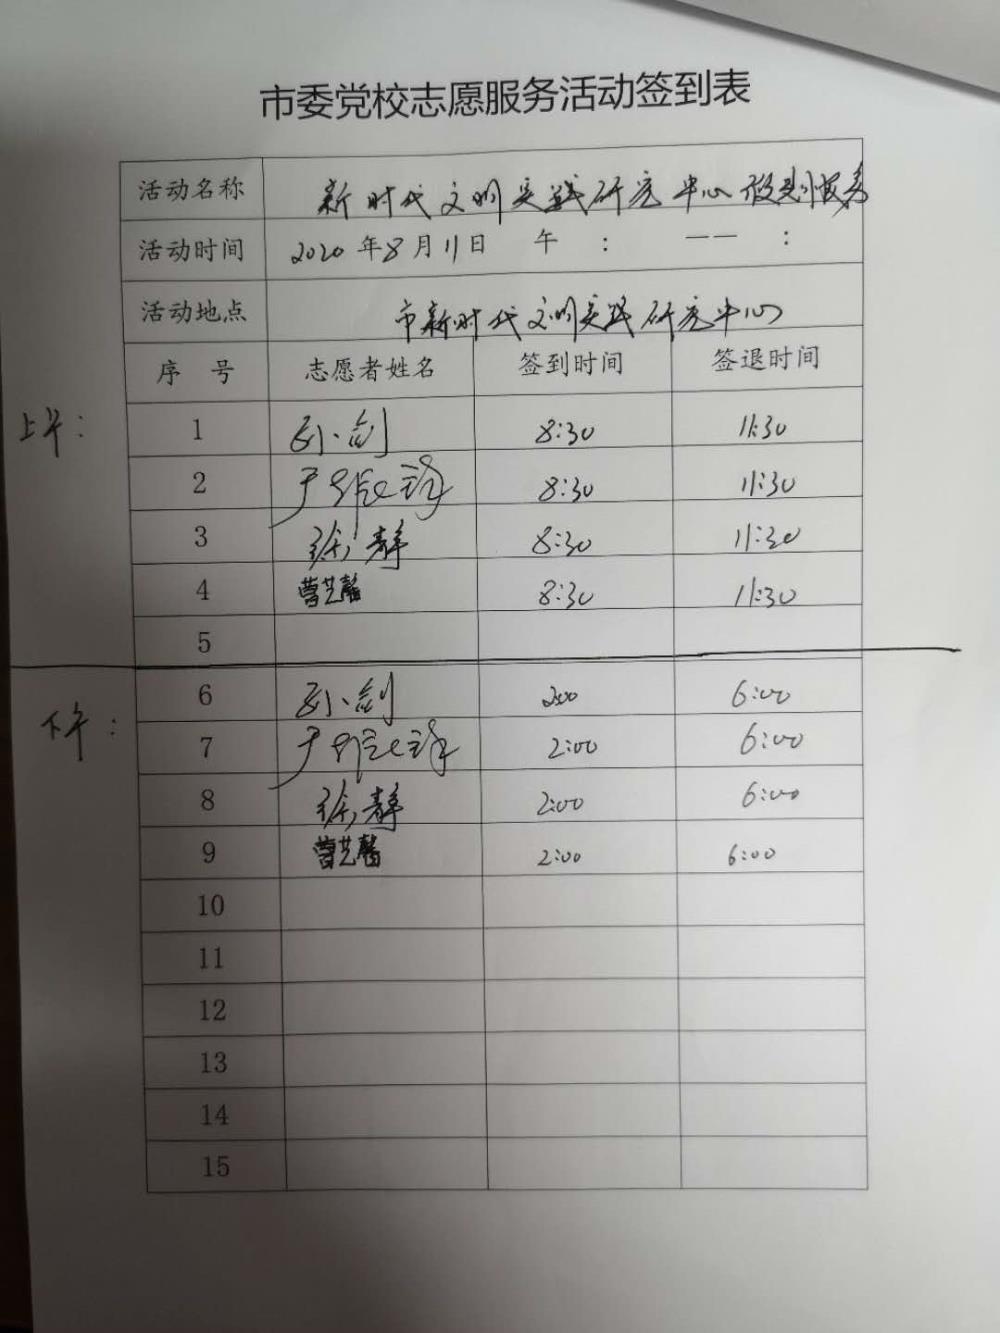 市委党校志愿服务活动签到表
活动名称 新时代文明实践研究中心
活动时间 2020年8月11日 午 : —— :
活动地点 市新时代文明实践研究中心
序 号 志愿者姓名 签到时间 签退时间
上午：
1 孙剑 8:30 11:30
2 8:30 11:30
3 徐静 8:30 11:30
4 曹艺馨 8:30 11:30
5
下午：
6 孙剑 2:00 6:00
7 2:00 6:00
8 徐静 2:00 6:00
9 曹艺馨 2:00 6:00
10
11
12
13
14
15